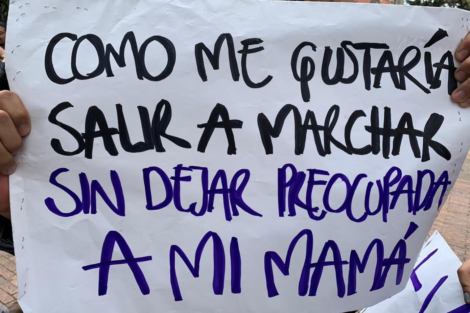 COMO ME GUSTARÍA
SALIR A MARCHAR
SIN DEJAR PREOCUPADA
A MI MAMÁ